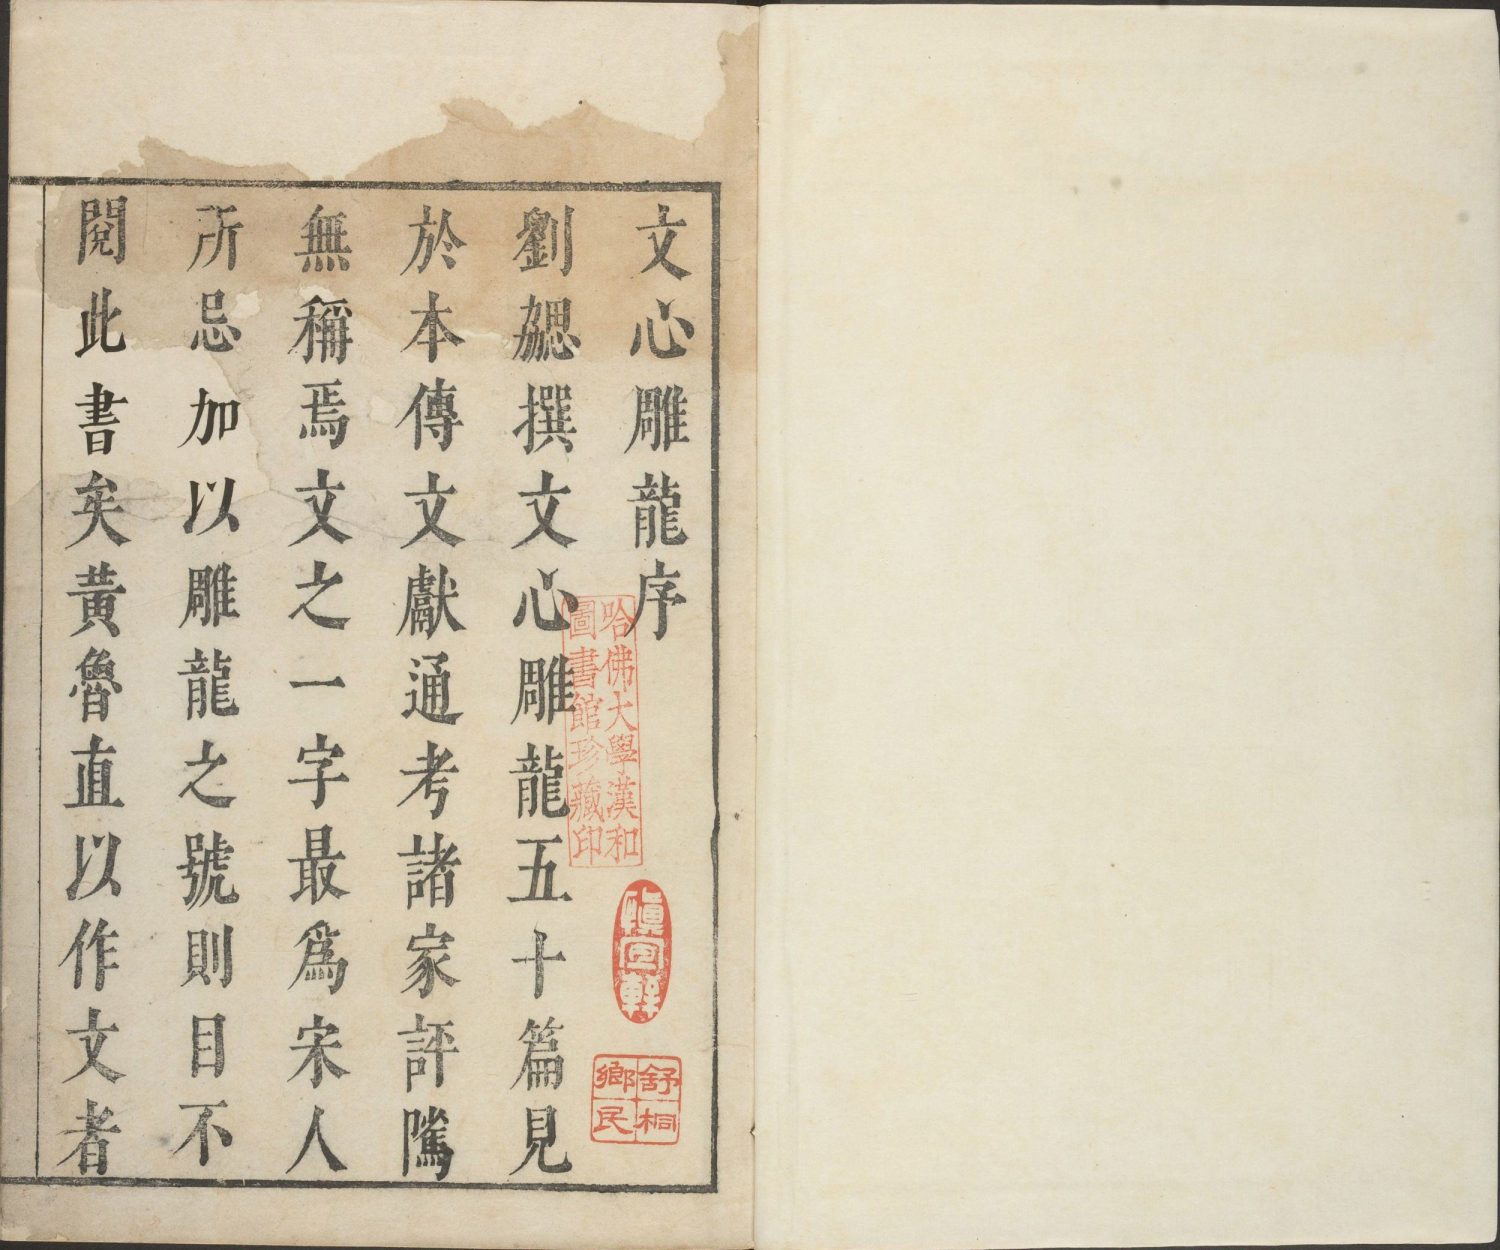 文心雕龍序
劉勰撰文心雕龍五十篇見
於本傳文獻通考諸家評隲
無稱焉文之一字最爲宋人
所忌加以雕龍之號則目不
閱此書矣黃魯直以作文者
哈佛大學漢和
圖書館珍藏印
舒桐
鄉民